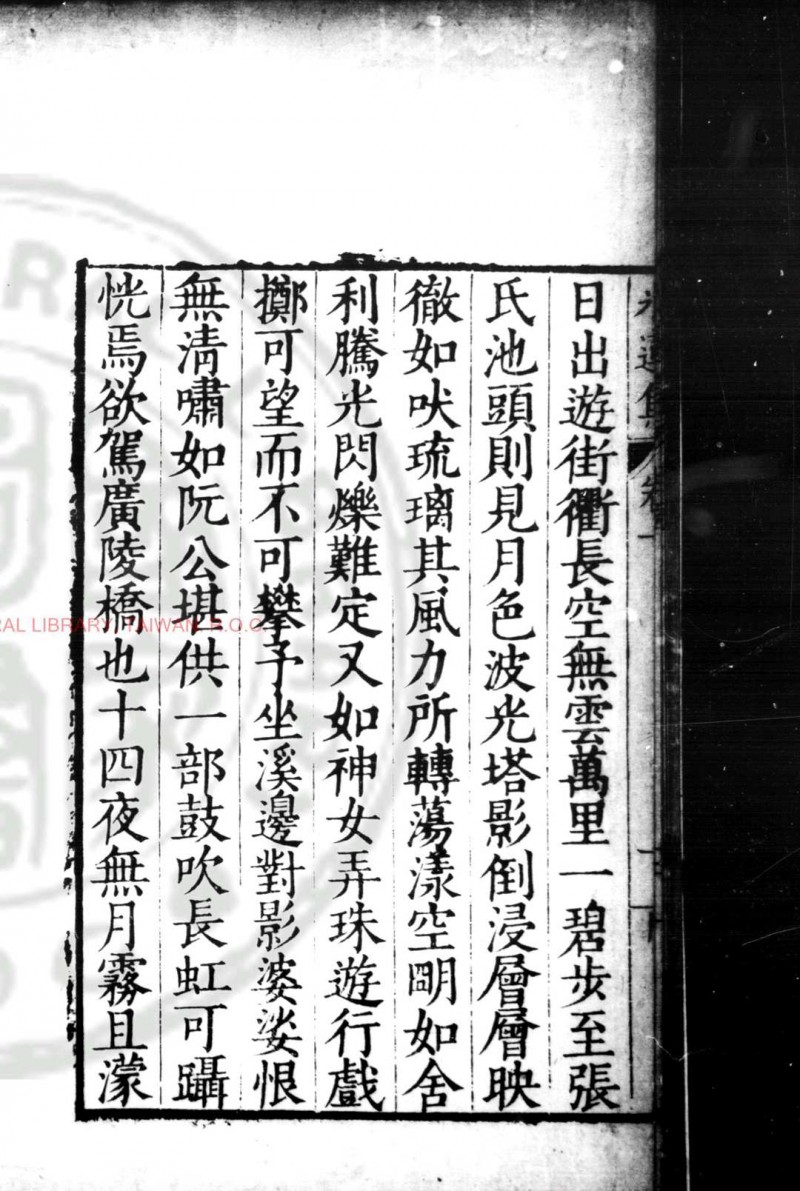 日出遊街衢長空無雲萬里一碧步至張
氏池頭則見月色波光塔影倒浸層層映
徹如吠琉璃其風力所轉蕩漾空明如舍
利騰光閃爍難定又如神女弄珠遊行戲
擲可望而不可攀予坐溪邊對影婆娑恨
無清嘯如阮公堪供一部鼓吹長虹可躡
恍焉欲駕廣陵橋也十四夜無月霧且濛
RAL LIBRARY, TAIWAN R.O.C.